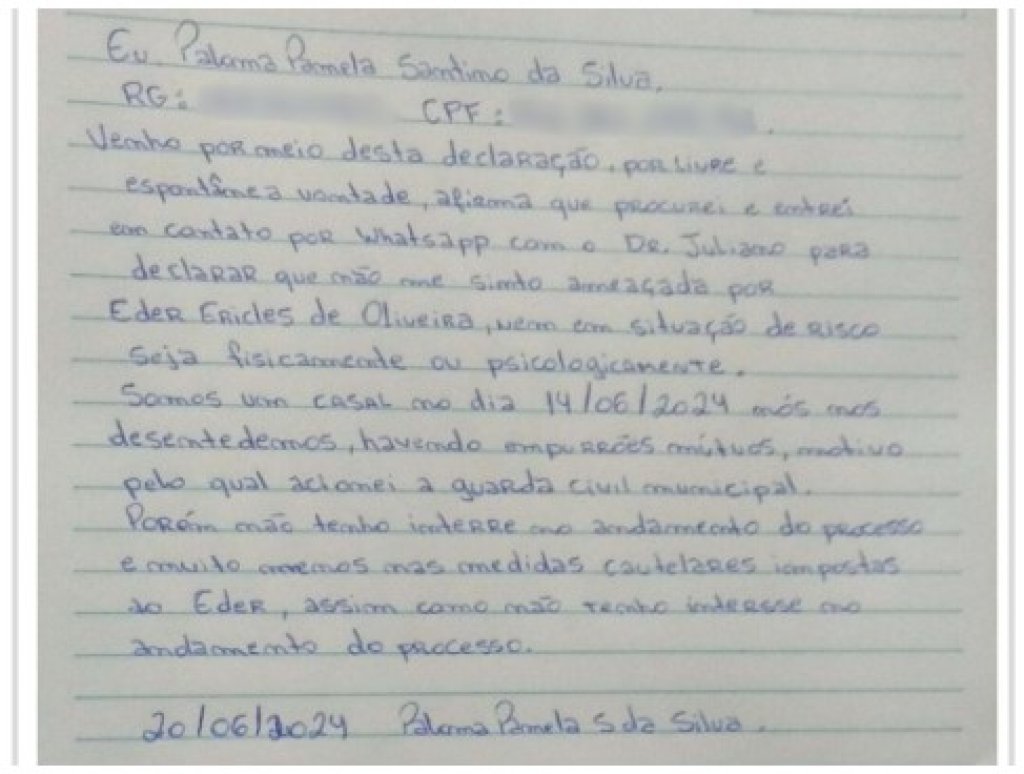 Eu Paloma Pamela Santino da Silva.
RG: CPF: .
Venho por meio desta declaração, por livre e
espontânea vontade, afirma que procurei e entrei
em contato por Whatsapp com o Dr. Juliano para
declarar que não me sinto ameaçada por
Eder Ericles de Oliveira, nem em situação de risco
seja fisicamente ou psicologicamente.
Somos um casal no dia 14/06/2024 nós nos
desentedemos, havendo empurrões mútuos, motivo
pelo qual acionei a guarda civil municipal.
Porém não tenho interre no andamento do processo
e muito menos nas medidas cautelares impostas
ao Eder, assim como não tenho interesse no
andamento do processo.
20/06/2024 Paloma Pamela S da Silva.